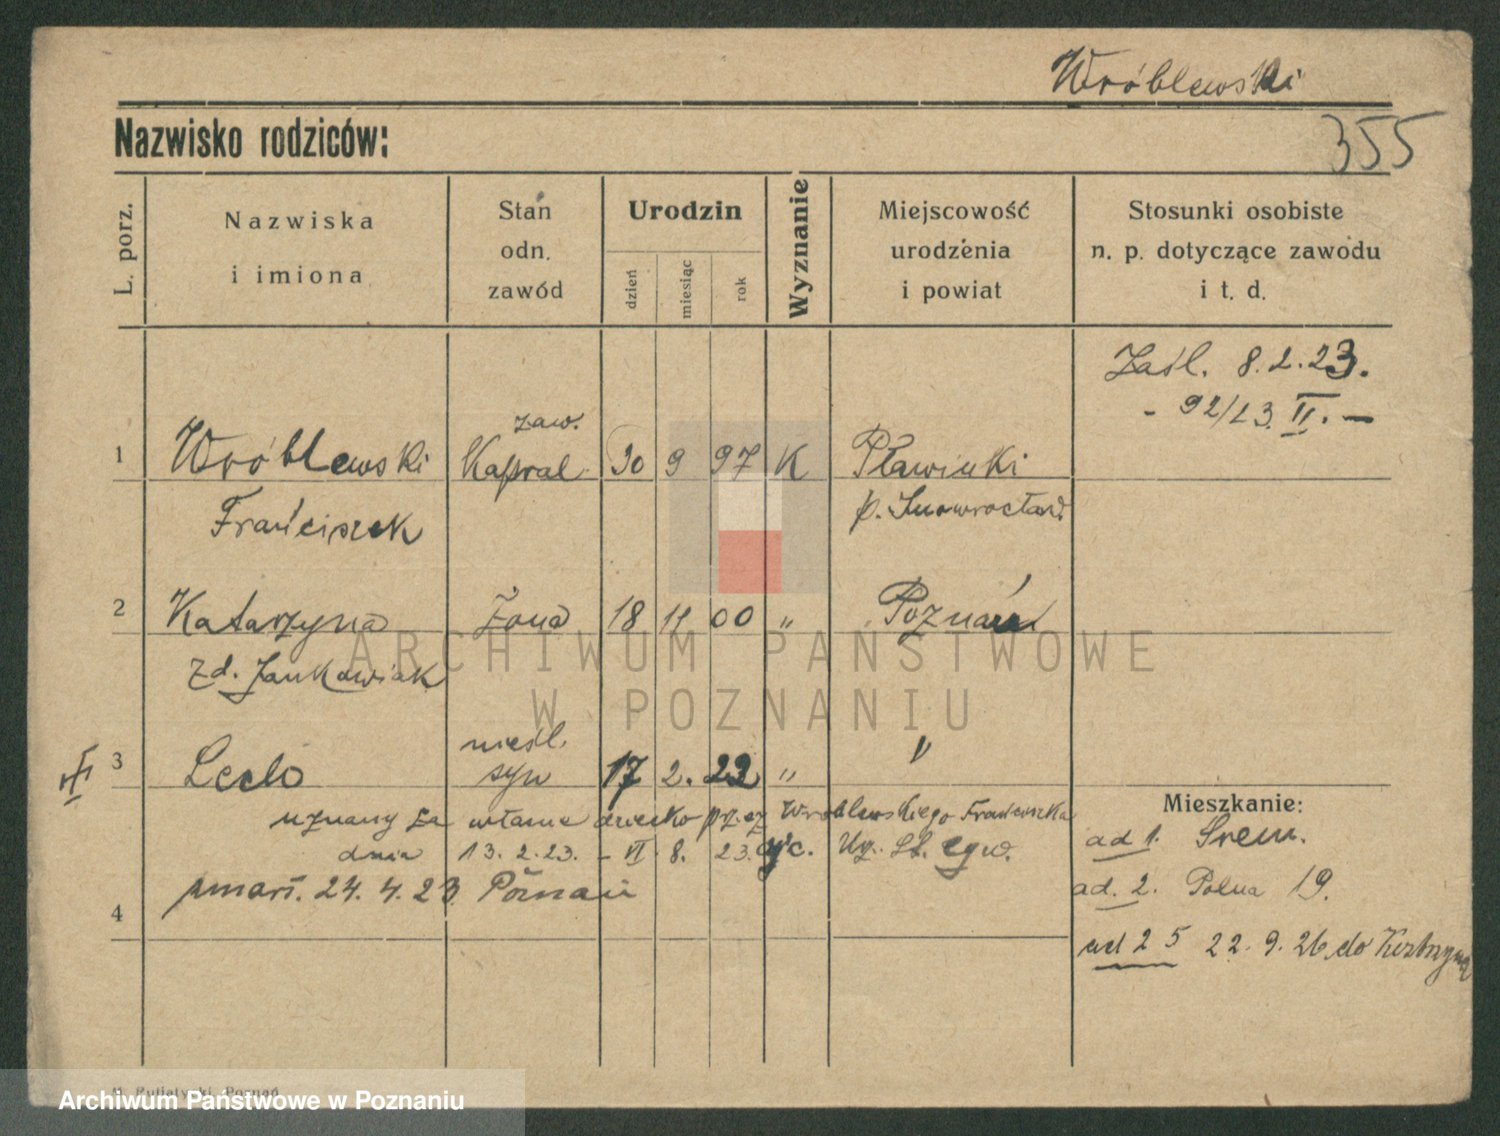 Wróblewski
Nazwisko rodziców:
355
L. porz.
Nazwiska
i imiona
Stan
odn.
zawód
Urodzin
dzień
miesiąc
rok
Wyznanie
Miejscowość
urodzenia
i powiat
Stosunki osobiste
n. p. dotyczące zawodu
i t. d.
Zaśl. 8.2.23.
- 92/23. II. -
zaw.
1 Wróblewski Kapral 30 9 97 K Pławinki
Franciszek p. Inowrocław
2 Katarzyna Żona 18 11 00 " Poznań
zd. Jankowiak
ARCHIWUM PAŃSTWOWE
W POZNANIU
nieśl.
VI 3 syn 17 2. 22 " "
Mieszkanie:
uznany za własne dziecko przez Wróblewskiego Franciszka
ad 1. Śrem.
dnia 13.2.23. - VI. 8. 23.
zmarł. 24.4.23. Poznań
ad. 2. Polna 19.
4
ad 2 5 22.9.26 do
Archiwum Państwowe w Poznaniu